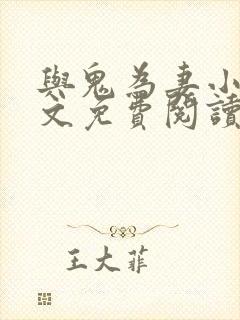 與鬼為妻小
文免費閱讀
王大菲